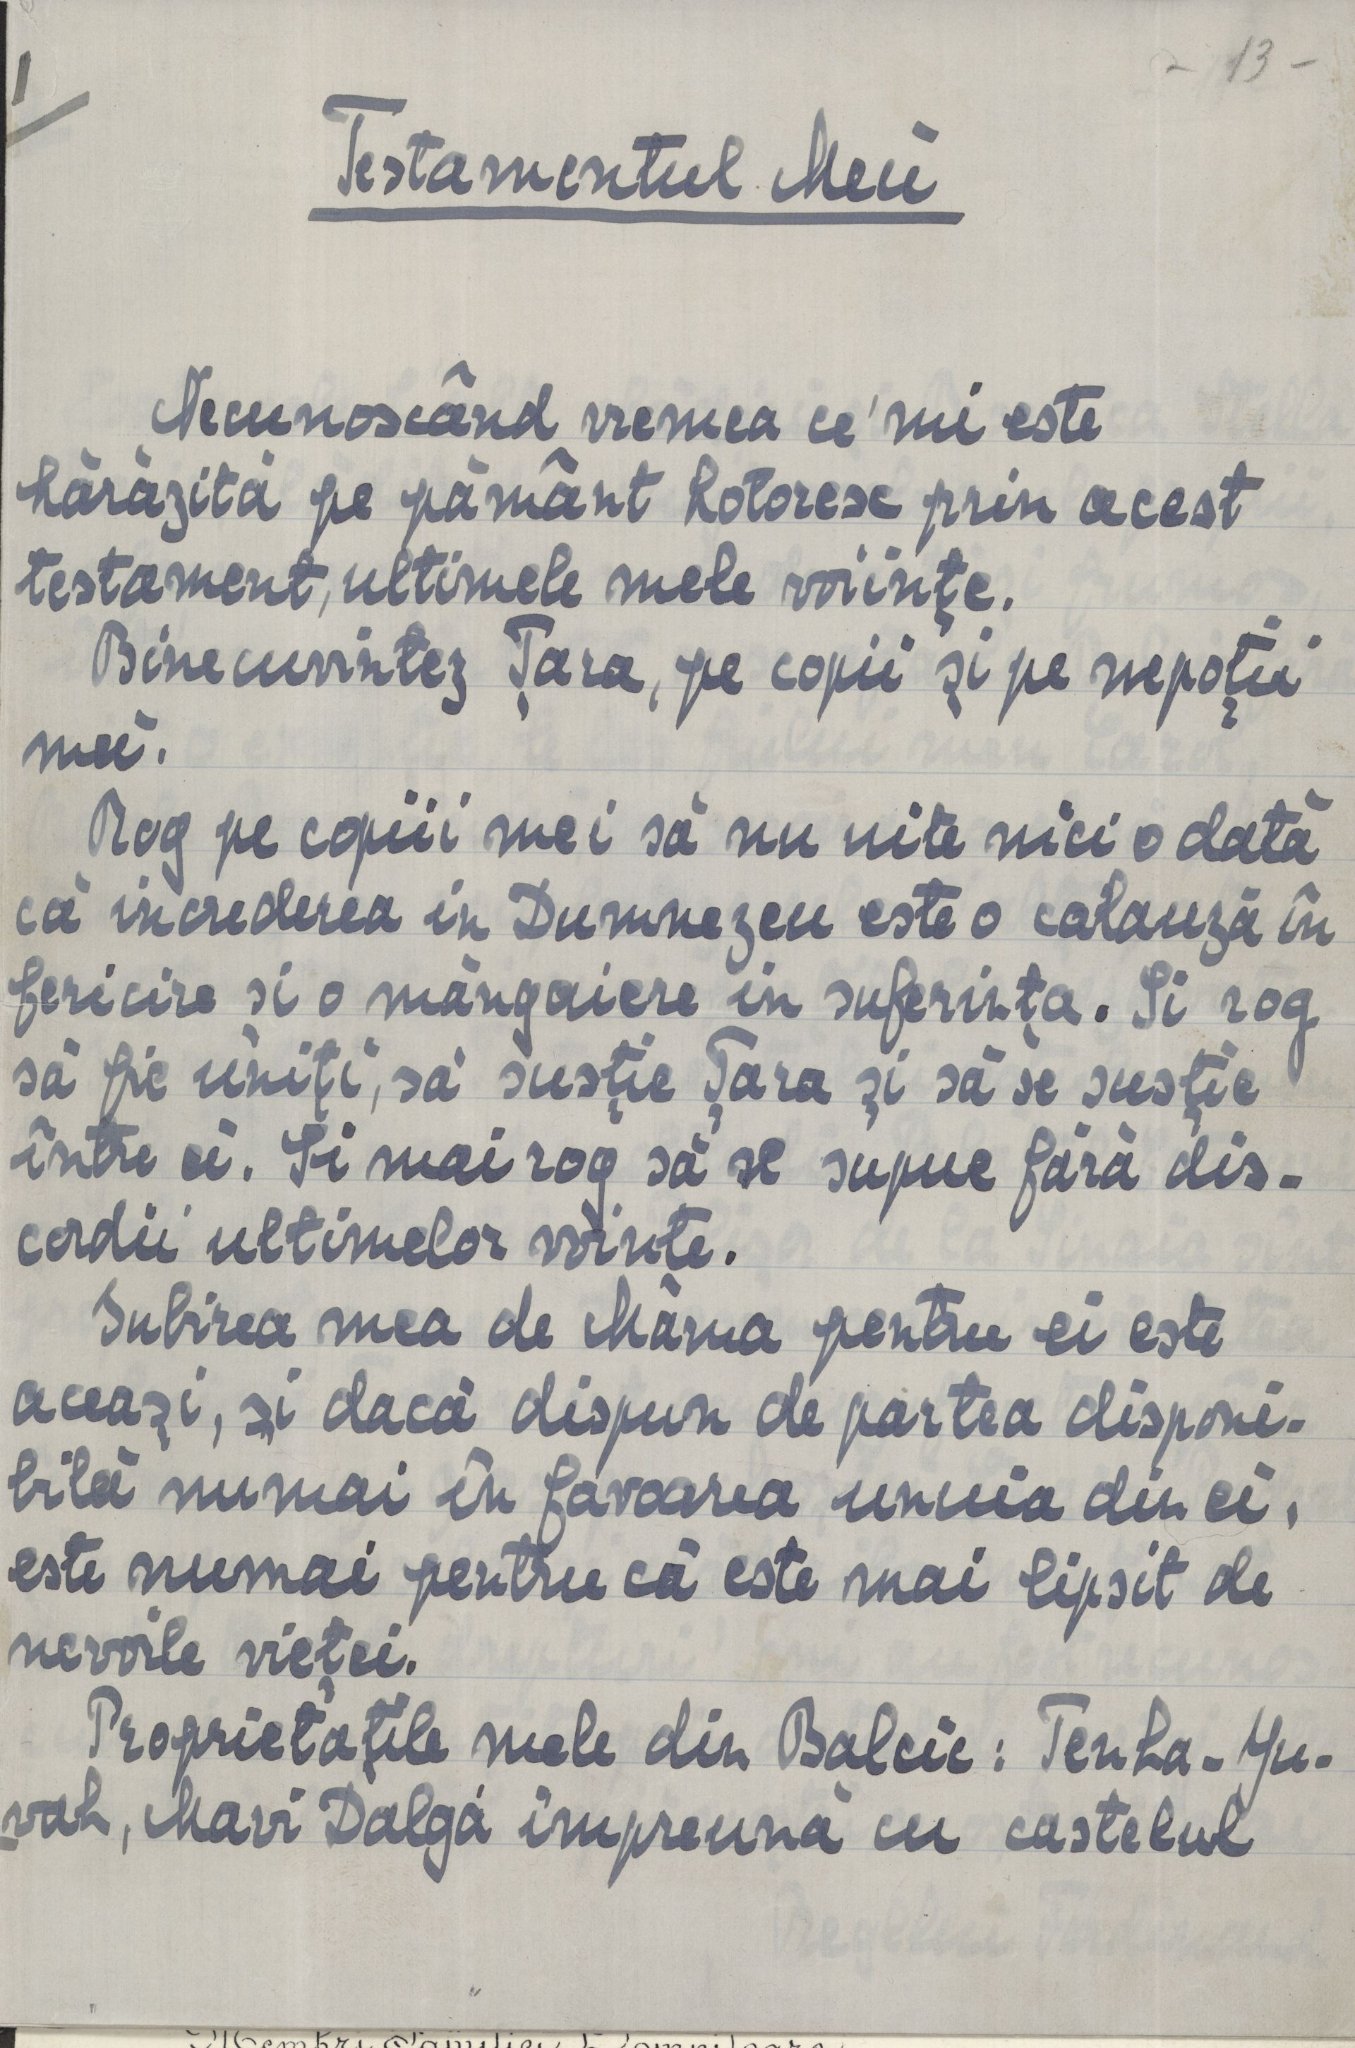 1
- 13 -
Testamentul Meu
Necunoscând vremea ce'mi este
hărăzită pe pământ hotoresc prin acest
testament, ultimele mele voiințe.
Binecuvintez Țara, pe copii și pe nepoții
mei.
Rog pe copiii mei să nu uite nici o dată
că increderea in Dumnezeu este o calauză în
fericire si o mângaiere in suferința. Ii rog
să fie uniți, să susție Țara și să se susție
între ei. Ii mai rog să se supue fără dis-
cordii ultimelor voințe.
Iubirea mea de Mâma pentru ei este
aceași, și dacă dispun de partea disponi-
bilă numai în favoarea unuia din ei,
este numai pentru că este mai lipsit de
nevoile vieței.
Proprietațile mele din Balcic: Tenha-Yu-
vah, Mavi Dalgă împreună cu castelul